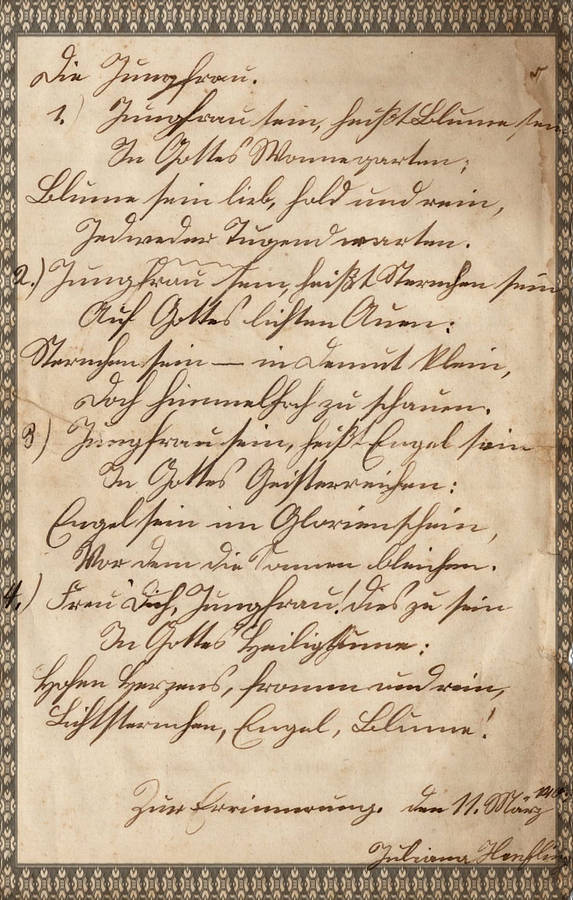 Die Jungfrau.
1.) Jungfrau sein, heißt Blume sein
In Gottes Wonnegarten;
Blume sein lieb, hold und rein,
Jedweder Tugend warten.
2.) Jungfrau sein, heißt Sternchen sein
Auf Gottes lichten Auen:
Sternchen sein — in Demut klein,
Doch himmelhoch zu schauen.
3) Jungfrau sein, heißt Engel sein
In Gottes Geisterreichen:
Engel sein im Glorienschein,
Vor dem die Sonnen bleichen.
4.) Freu Dich, Jungfrau! dies zu sein
In Gottes Heiligthume:
Hohen Herzens, fromm und rein,
Lichtsternchen, Engel, Blume!
Zur Erinnerung. den 11. März
Juliana